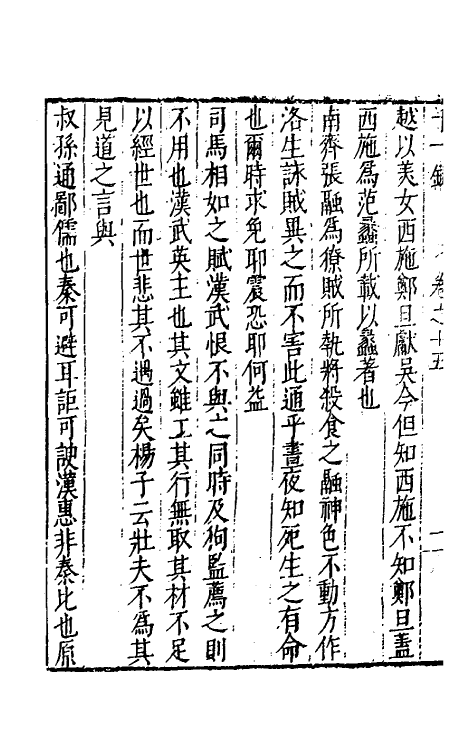 越以美女西施鄭旦獻吳今但知西施不知鄭旦蓋
西施爲范蠡所載以蠡著也
南齊張融爲獠賊所執將殺食之融神色不動方作
洛生詠賊異之而不害此通乎晝夜知死生之有命
也爾時求免耶震恐耶何益
司馬相如之賦漢武恨不與之同時及狗監薦之則
不用也漢武英主也其文雖工其行無取其材不足
以經世也而世悲其不遇過矣楊子云壯夫不爲其
見道之言與
叔孫通鄙儒也秦可避耳詎可諛漢惠非秦比也原